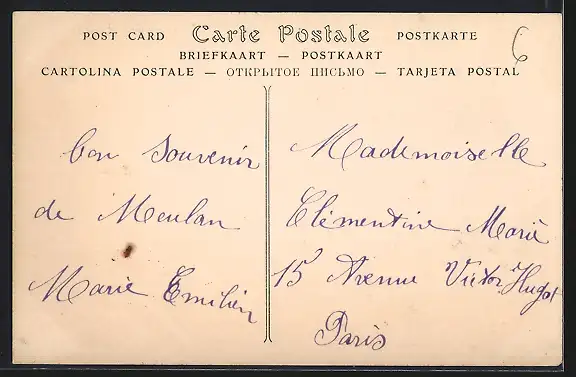 POST CARD Carte Postale POSTKARTE
BRIEFKAART — POSTKAART
CARTOLINA POSTALE — ОТКРЫТОЕ ПИСЬМО — TARJETA POSTAL
6
bon souvenir
de Meulan
Marie Emilien
Mademoiselle
Clémentine Marie
15 Avenue Victor Hugo
Paris